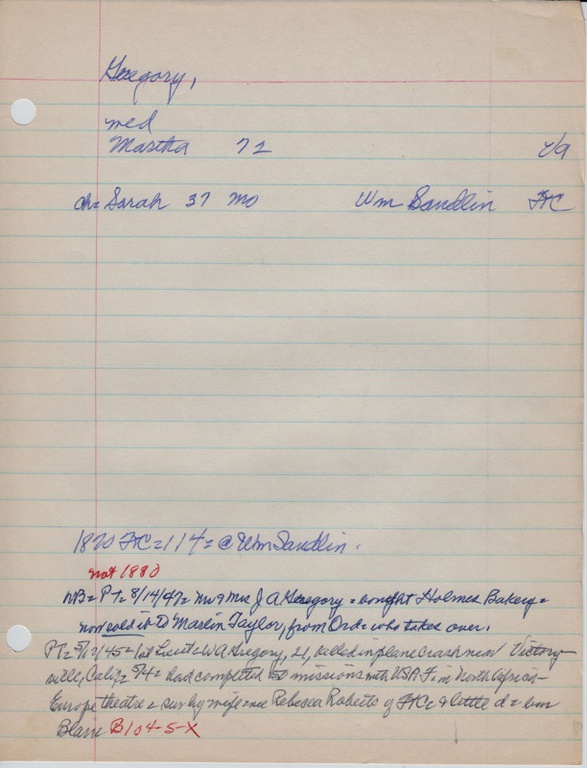 Gregory,
med
Martha 72 c/9
ch= Sarah 37 Mo Wm Sandlin FtC
1870 FtC=114= @ Wm Sandlin.
not 1880
NB= PT= 8/14/47= Mr & Mrs J A Gregory = bought Holmes Bakery=
now sold it to Marlin Taylor, from Ord= who takes over.
PT= 5/12/45= 1st Lieut= W A Gregory, 21, killed in plane crash near Victory
ville, Calif= 5/4= had completed 50 missions with USAF in North African-
Europe theatre = sur by wife nee Rebecca Roberts of FtC= & little d=
Blair B104-5-X